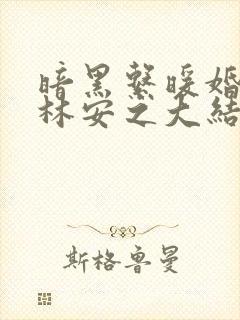 暗黑系暖婚
林安之大結
斯格鲁曼